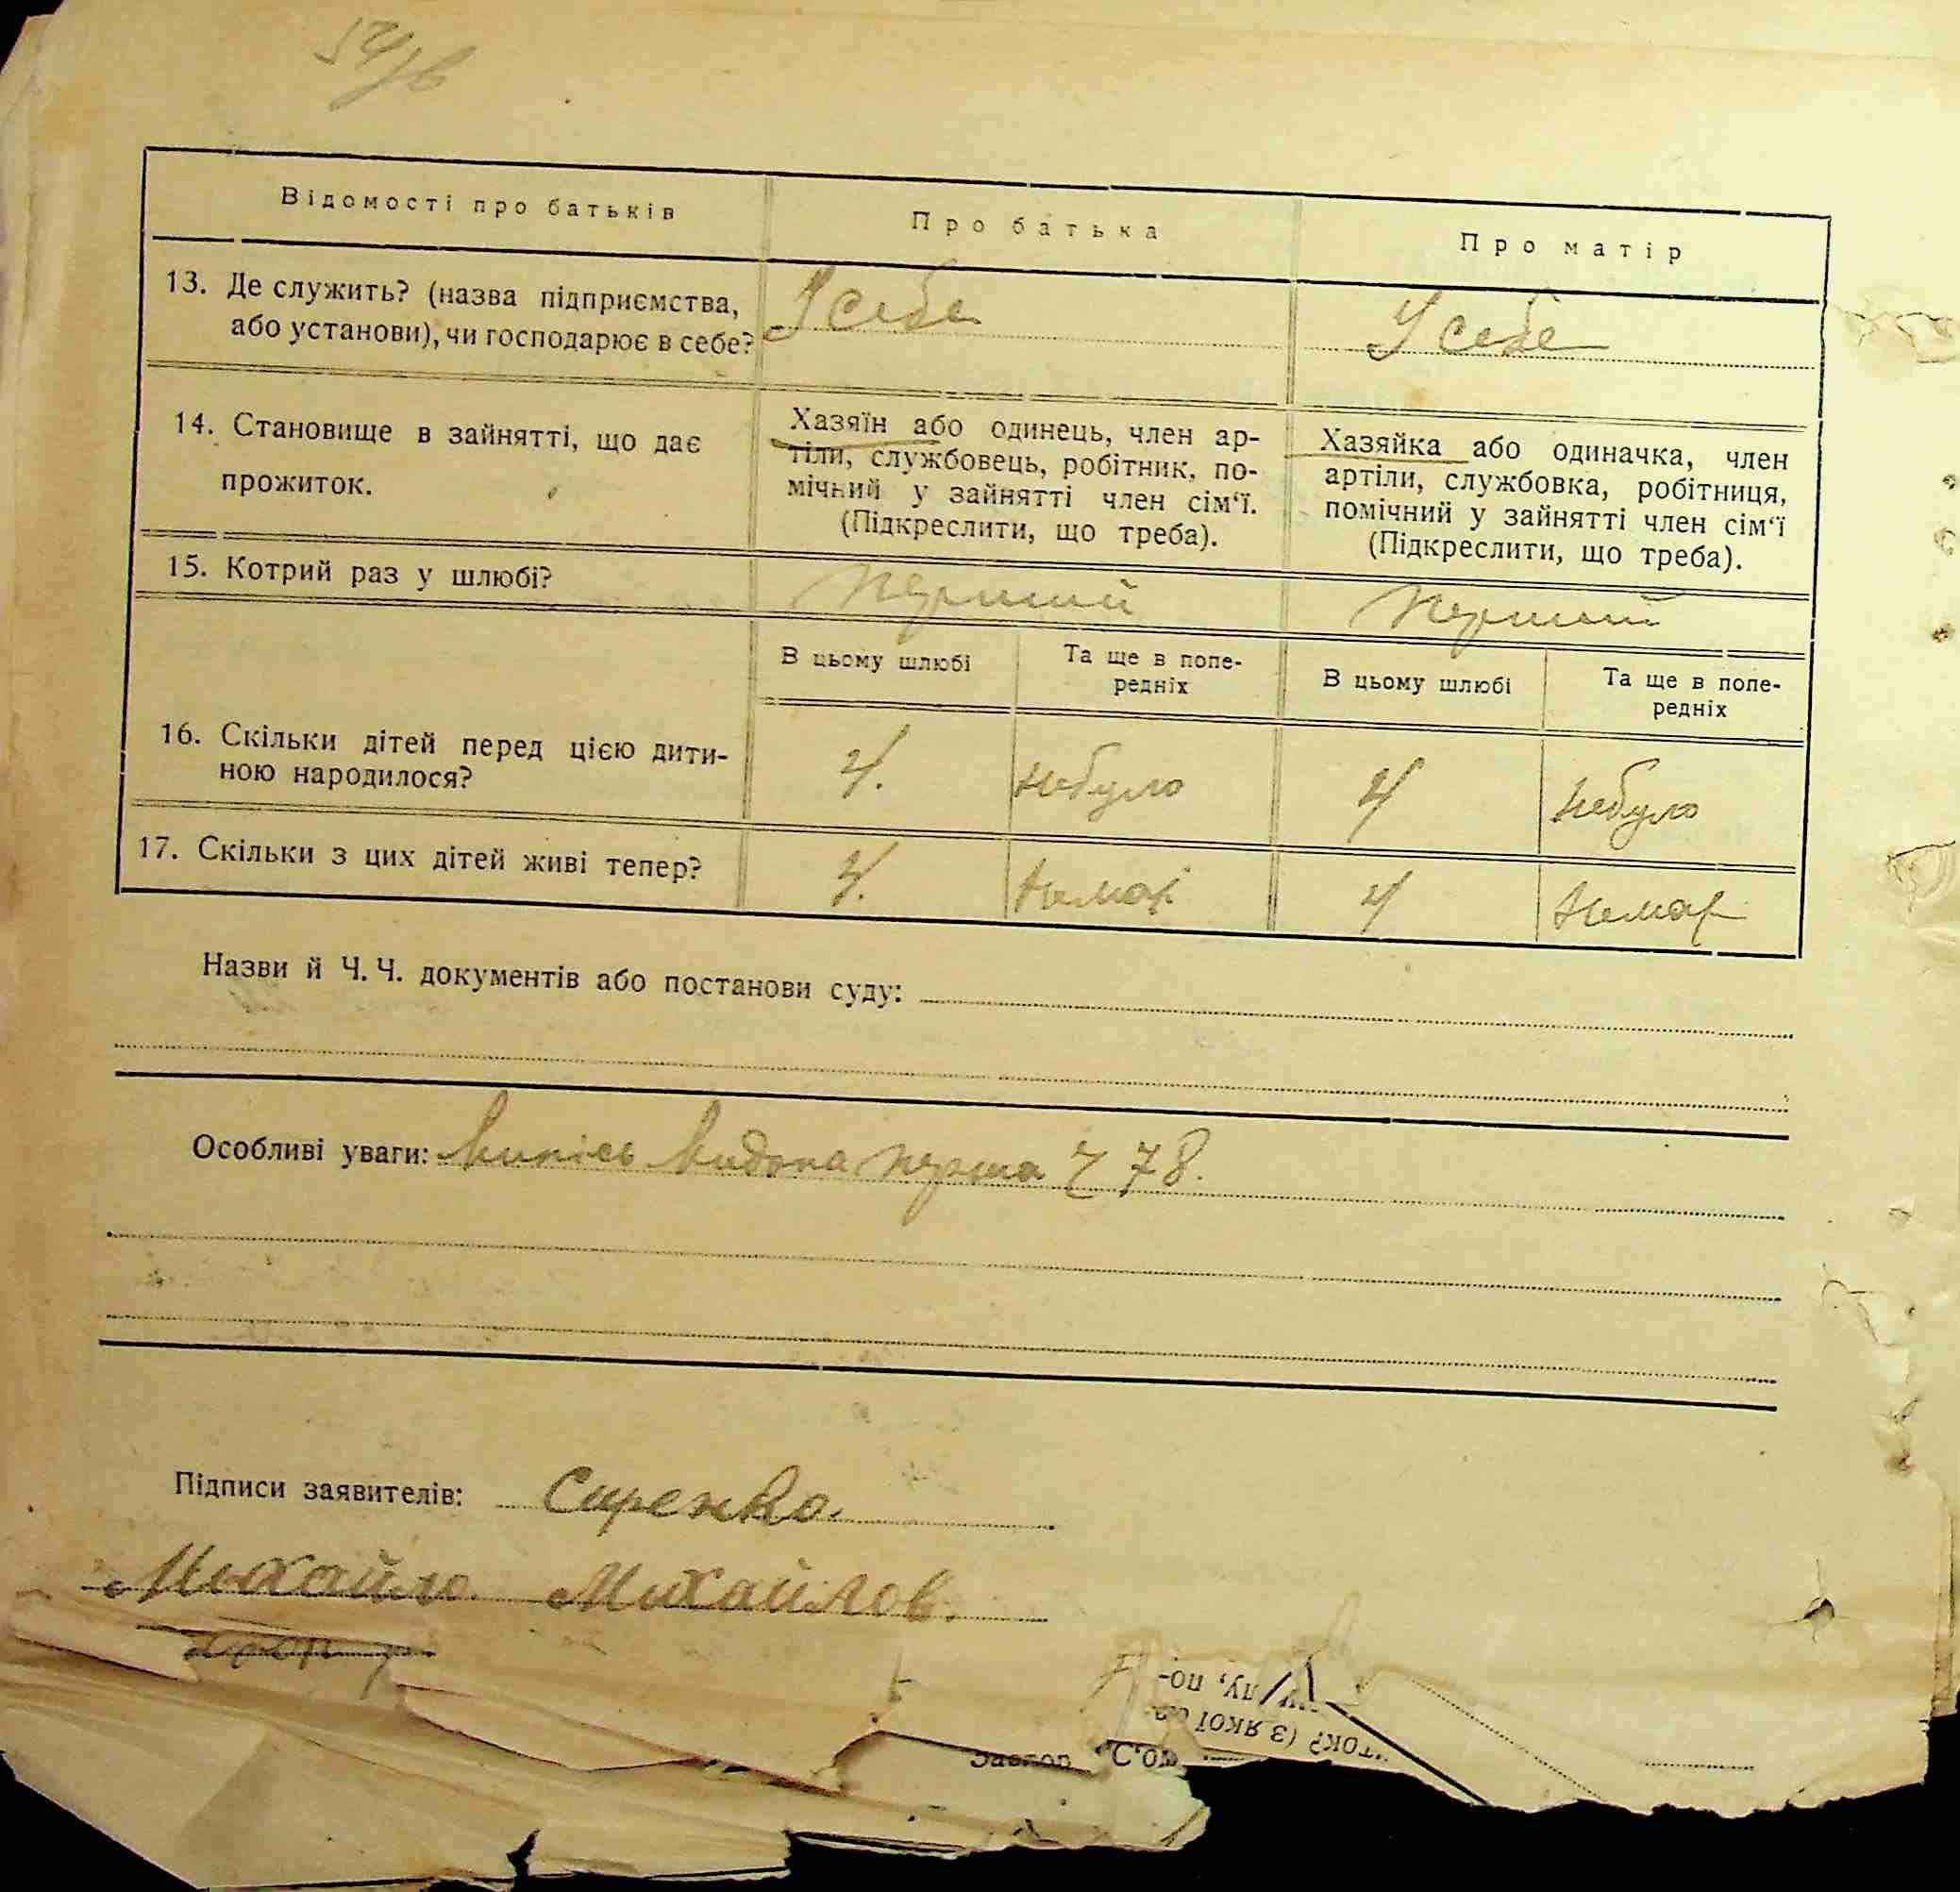 54/в
Відомості про батьків
Про батька
Про матір
13. Де служить? (назва підприємства,
або установи), чи господарює в себе?
У себе
У себе
14. Становище в зайнятті, що дає
прожиток.
Хазяїн або одинець, член ар-
тіли, службовець, робітник, по-
мічний у зайнятті член сім'ї.
(Підкреслити, що треба).
Хазяйка або одиначка, член
артіли, службовка, робітниця,
помічний у зайнятті член сім'ї
(Підкреслити, що треба).
15. Котрий раз у шлюбі?
перший
перший
В цьому шлюбі
Та ще в попе-
редніх
В цьому шлюбі
Та ще в попе-
редніх
16. Скільки дітей перед цією дити-
ною народилося?
4.
небуло
4
небуло
17. Скільки з цих дітей живі тепер?
4.
немає
4
немає
Назви й Ч. Ч. документів або постанови суду:
Особливі уваги: Випісь видана перша Ч 78.
Підписи заявителів: Сиренко.
Михайло Михайлов.
пу, по-
ток? (з якої
Завзор